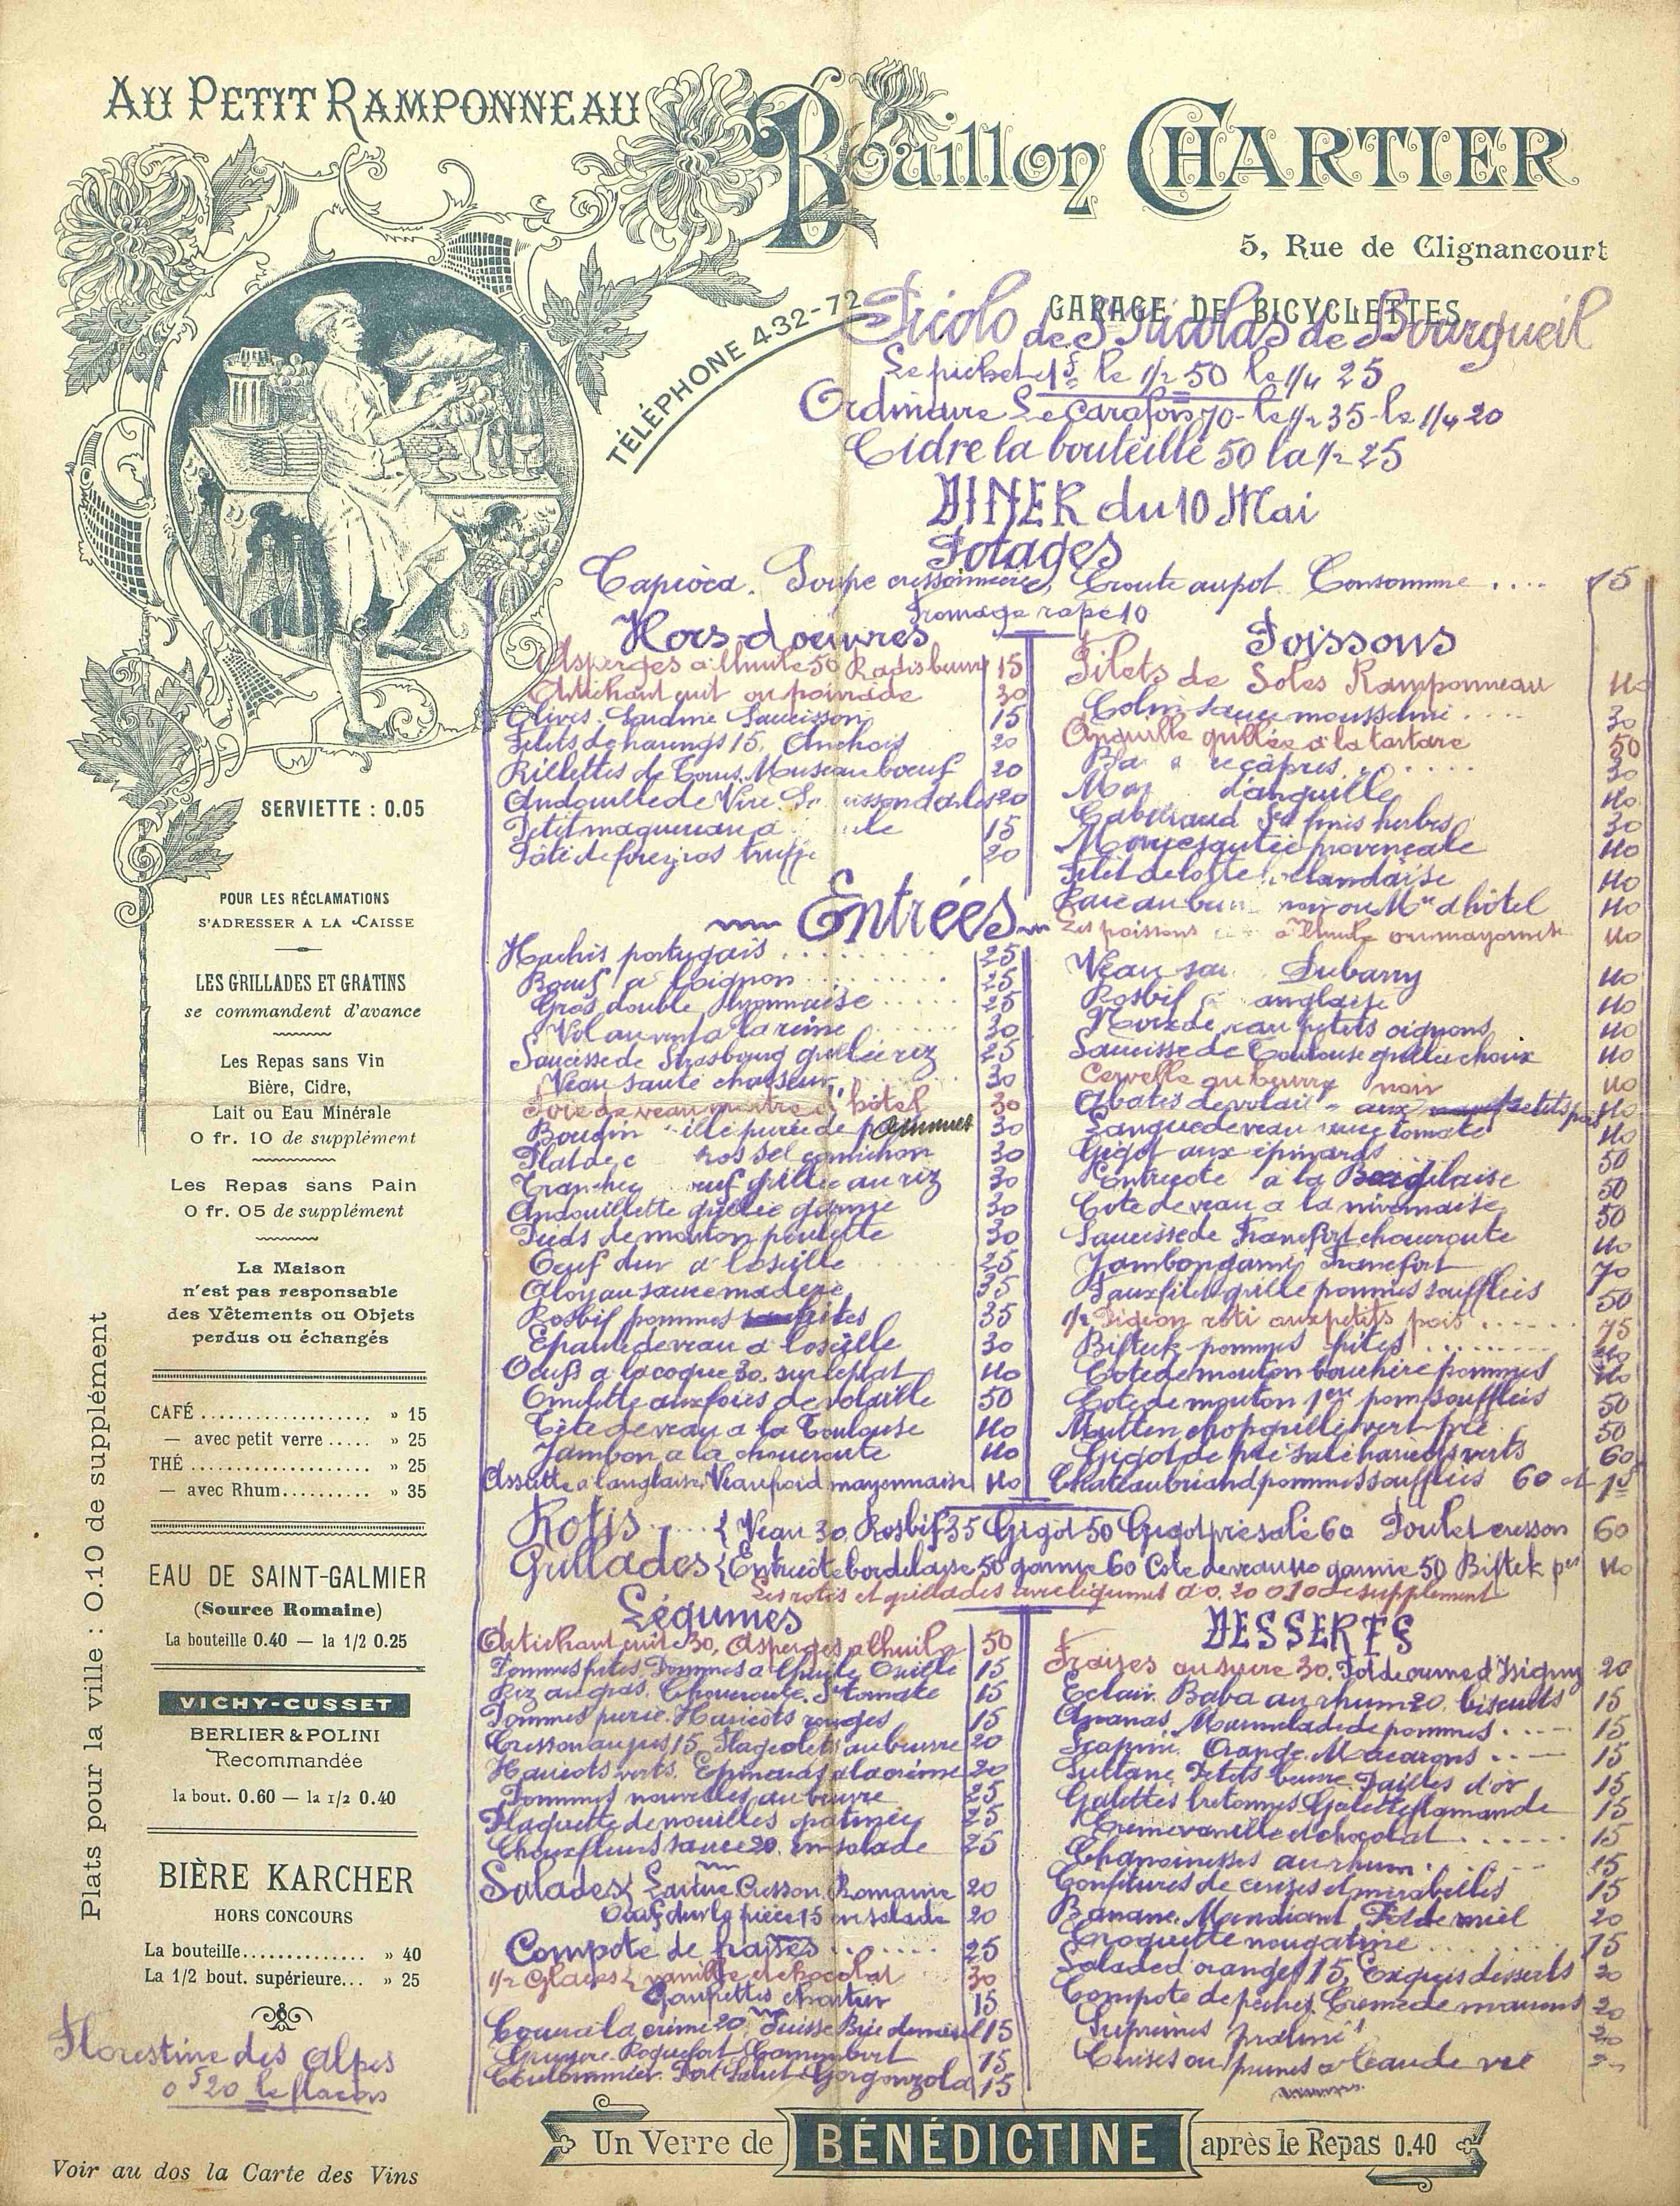 AU PETIT RAMPONNEAU
Bouillon CHARTIER
5, Rue de Clignancourt
GARAGE DE BICYCLETTES
TÉLÉPHONE 432-72
Picolo de St Nicolas de Bourgueil
Le pichet 1f. le 1/2 50 le 1/4 25
Ordinaire Le Carafon 70 - le 1/2 35 - le 1/4 20
Cidre la bouteille 50 la 1/2 25
DINER du 10 Mai
Potages
Tapioca. Soupe cressonnière, Croute au pot. Consomme .... 15
Fromage rapé 10
Hors-d'oeuvres
Asperges à l'huile 50 Radis beurre 15
Artichaut cuit ou poivrade 30
Olives. Sardine Saucisson 15
Filets de harengs 15, Anchois 20
Rillettes de Tours. Museau boeuf 20
Andouille de Vire. 20
Petit maquereau 15
Pâté de foie gras truffe 20
Poissons
Filets de Soles Ramponneau 40
Colin sauce mousseline .... 30
Anguille grillée à la tartare 50
capres 30
d'anguille 40
Cabillaud fines herbes 30
Morue sautée provençale 40
Filet de 40
Raie au noir ou Mtre d'hôtel 40
Les poissons à l'huile ou mayonnaise 40
Entrées
Hachis portugais 25
Boeuf à l'oignon 25
Gras double lyonnaise 25
Vol au vent a la reine 30
Saucisse de Strasbourg grillée riz 25
Veau sauté chasseur 30
Foie de veau maitre d'hôtel 30
Boudin purée de pommes 30
Plat de gros sel cornichon 30
Tranche grillée au riz 30
Andouillette grillée garnie 30
Pieds de mouton poulette 30
Oeuf dur à l'oseille 25
Aloyau sauce madère 35
Rosbif pommes frites 35
Epaule de veau à l'oseille 30
Oeufs a la coque 30. sur le plat 40
Omelette aux foies de volaille 50
Tête de veau a la Toulouse 40
Jambon a la choucroute 40
Assiette a l'anglaise. Veau froid mayonnaise 40
Veau Dubarry 40
Rosbif anglaise 40
Noix de veau petits oignons 40
Saucisse de Toulouse grillée choux 40
Cervelle au beurre noir 40
Abatis de volaille aux petits pois 40
Langue de veau sauce tomate 40
Gigot aux épinards 50
Entrecote à la 50
Cote de veau a la nivernaise 50
Saucisse de Francfort choucroute 40
Jambon garni Francfort 70
Faux filet grillé pommes soufflées 50
1/2 Pigeon roti aux petits pois 75
Bifteck pommes frites 40
Cote de mouton bouchère pommes 40
Cote de mouton 1ere pom soufflées 50
Mutton chop grillé vert-pré 50
Gigot de pré salé haricots verts 60
Chateaubriand pommes soufflées 60 et 1f
Rotis .... { Veau 30, Rosbif 35 Gigot 50 Gigot pré salé 60 Poulet cresson 60
Grillades { Entrecôte bordelaise 50 garnie 60 Cote de veau 40 garnie 50 Biftek pes 40
Les rotis et grillades avec légumes à 0.20 0.10 de supplément
Légumes
Artichaut cuit 30, Asperges a l'huile 50
Pommes frites, Pommes a l'huile Oseille 15
Riz au gras. Choucroute. 15
Pommes purée. Haricots rouges 15
Cresson au jus 15 Flageolets au beurre 20
Haricots verts. Epinards a la crème 20
Pommes nouvelles au beurre 25
Plaquette de nouilles 25
Chouxfleurs sauce 20. en salade 25
Salades { Laitue. Cresson. Romaine 20
Oeuf dur la pièce 15 en salade 20
Compote de fraises 25
1/2 Glaces { vanille et chocolat 30
Gaufrettes Chartier 15
Coeur à la crème 20 Suisse Brie 15
Gruyère. Roquefort. Camembert 15
Coulommier. Port Salut. Gorgonzola 15
DESSERTS
Fraises au sucre 30. Pot de crème d'Isigny 20
Eclair. Baba au rhum 20. biscuits 15
Ananas. Marmelade de pommes 15
Orange. Macarons 15
Sultane. Petits beurre. Pailles d'or 15
Galettes bretonnes. Galette flamande 15
Crème vanille et chocolat 15
Chanoinesses au rhum 15
Confitures de cerises et mirabelles 15
Banane. Mendiant. Pot de miel 20
Croquette nougatine 15
Salade d'oranges 15. Exquis desserts 20
Compote de pêches. Crème de marrons 20
Suprêmes praliné 20
Cerises ou prunes a l'eau de vie
SERVIETTE : 0.05
POUR LES RÉCLAMATIONS
S'ADRESSER A LA CAISSE
LES GRILLADES ET GRATINS
se commandent d'avance
Les Repas sans Vin
Bière, Cidre,
Lait ou Eau Minérale
0 fr. 10 de supplément
Les Repas sans Pain
0 fr. 05 de supplément
La Maison
n'est pas responsable
des Vêtements ou Objets
perdus ou échangés
CAFÉ ................... » 15
— avec petit verre ..... » 25
THÉ .................... » 25
— avec Rhum.......... » 35
EAU DE SAINT-GALMIER
(Source Romaine)
La bouteille 0.40 — la 1/2 0.25
VICHY-CUSSET
BERLIER & POLINI
Recommandée
la bout. 0.60 — la 1/2 0.40
BIÈRE KARCHER
HORS CONCOURS
La bouteille.............. » 40
La 1/2 bout. supérieure... » 25
Florestine des Alpes
0f20 le flacon
Plats pour la ville : 0.10 de supplément
Voir au dos la Carte des Vins
Un Verre de BÉNÉDICTINE après le Repas 0.40